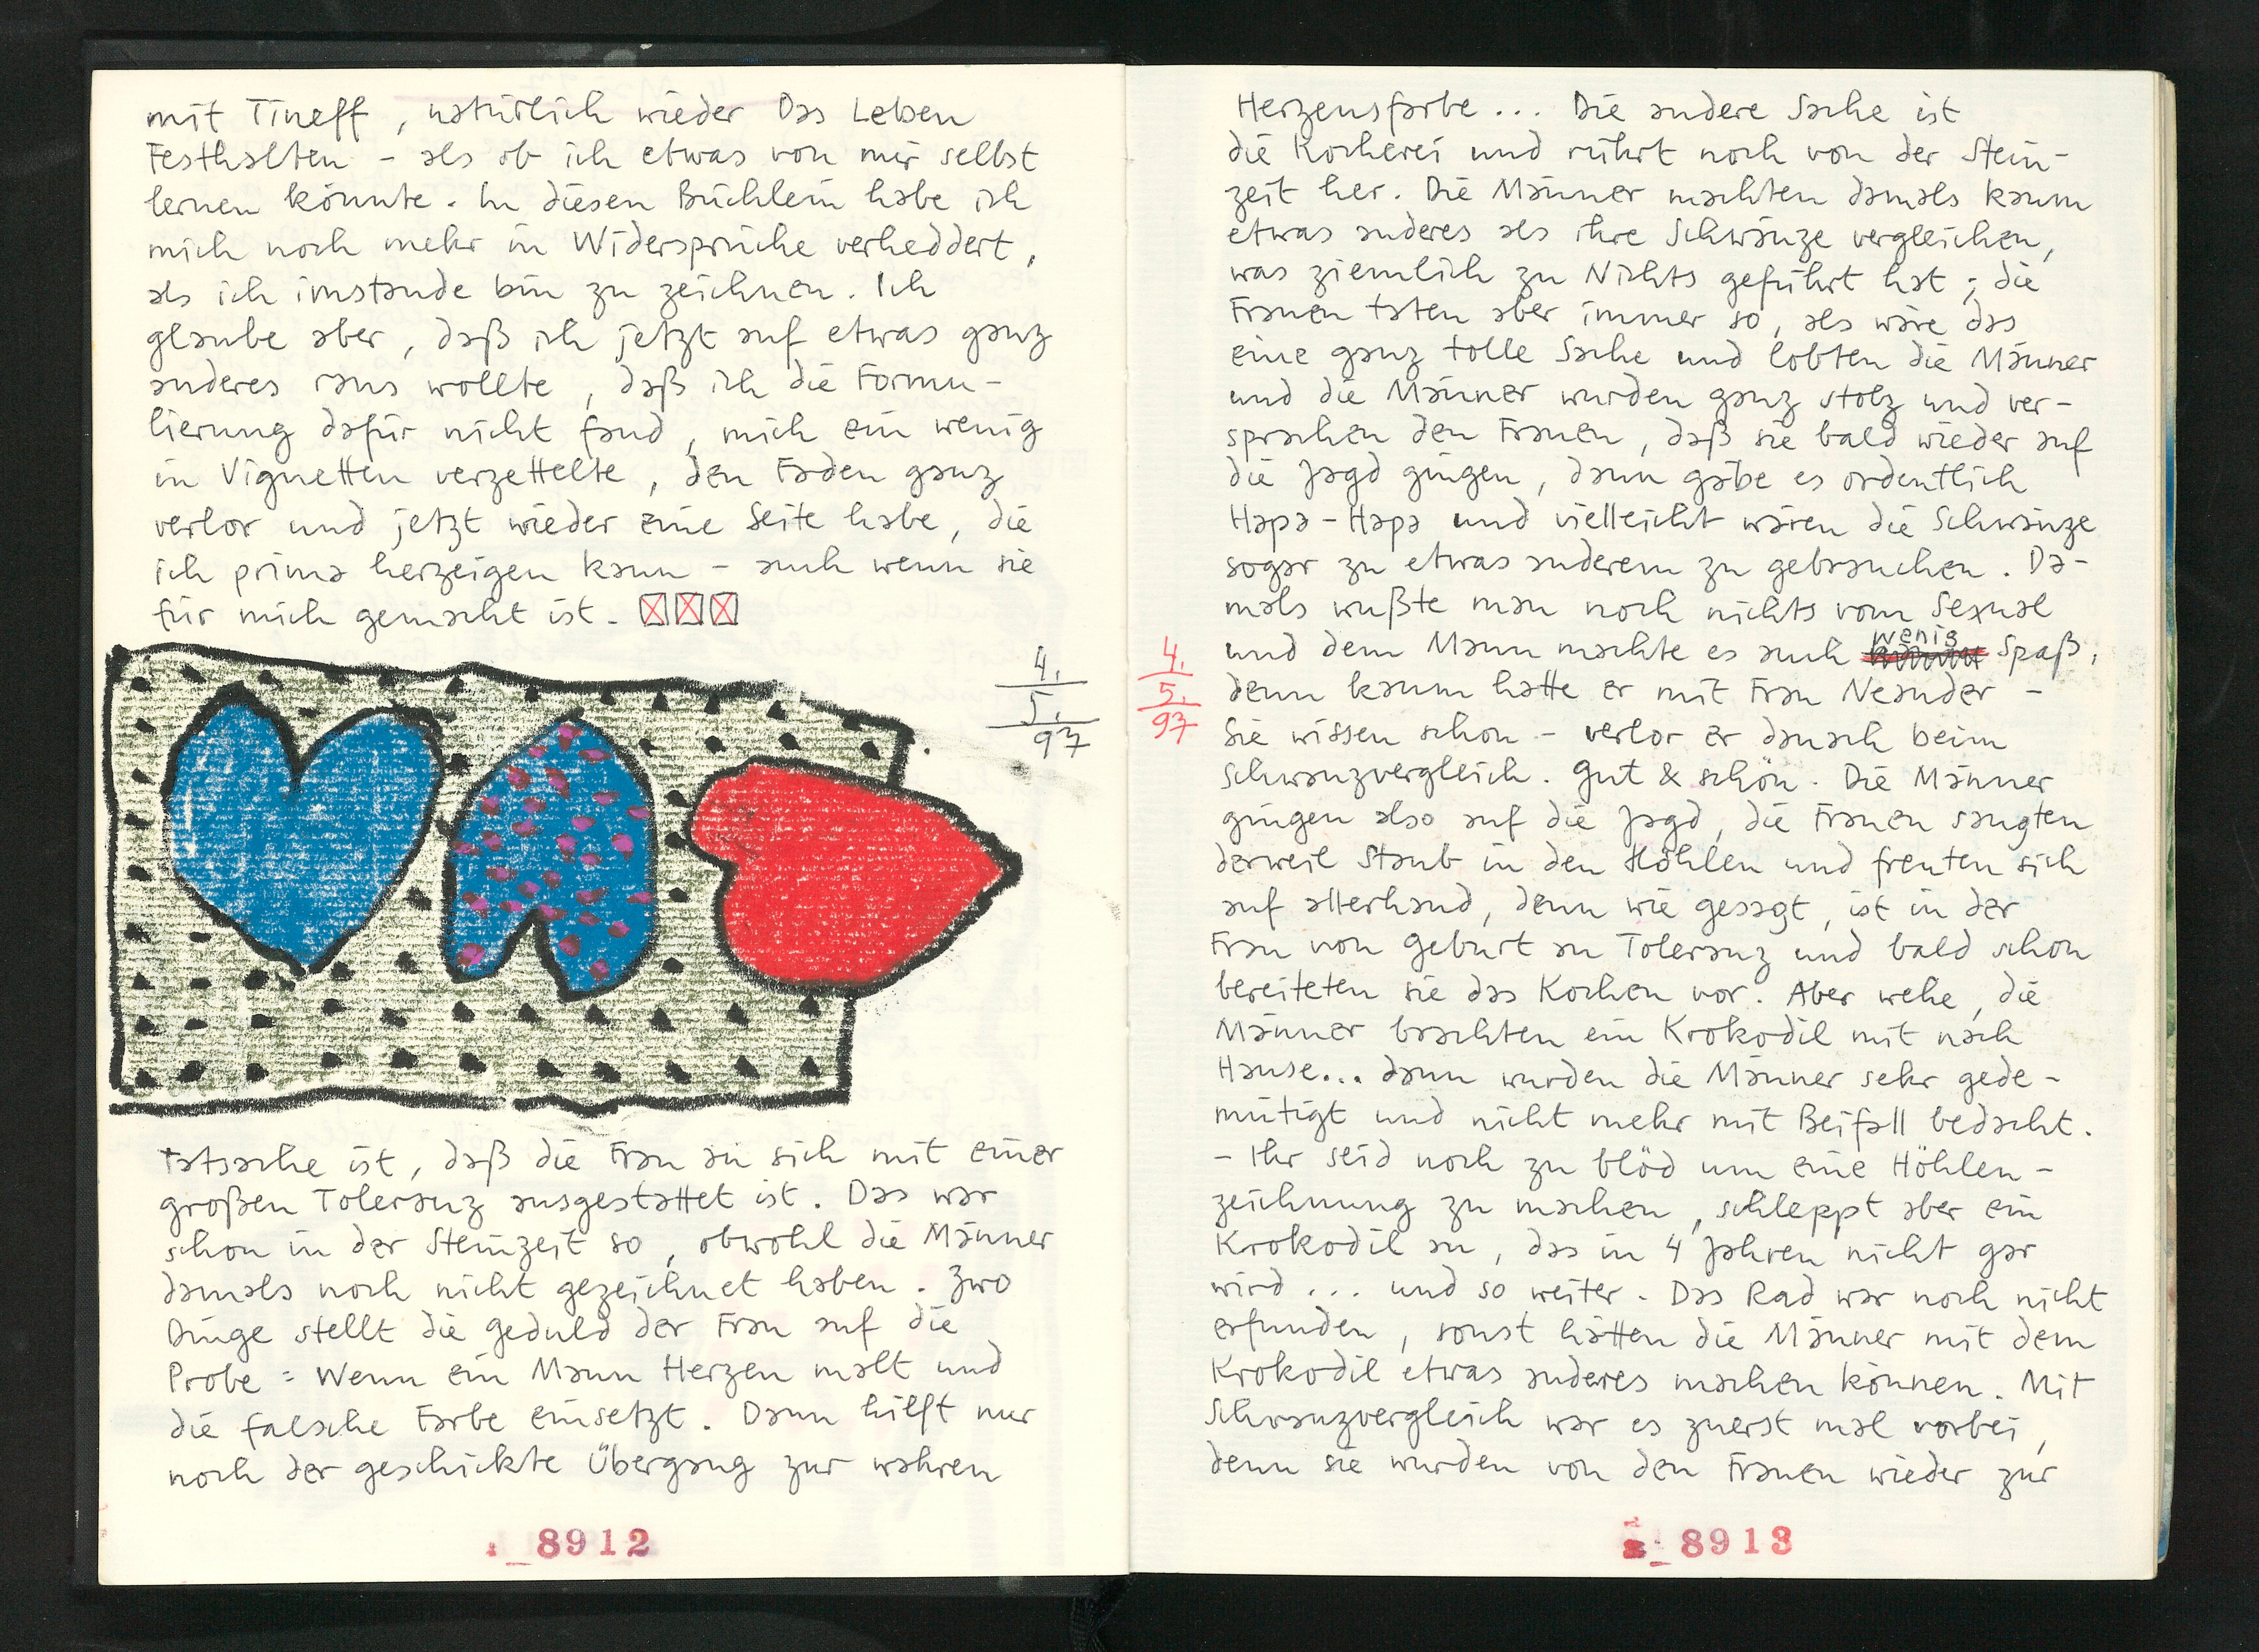 mit Tineff, natürlich wieder Das Leben
Festhalten – als ob ich etwas von mir selbst
lernen könnte. In diesen Büchlein habe ich
mich noch mehr in Widersprüche verheddert,
als ich imstande bin zu zeichnen. Ich
glaube aber, daß ich jetzt auf etwas ganz
anderes raus wollte, daß ich die Formu-
lierung dafür nicht fand, mich ein wenig
in Vignetten verzettelte, den Faden ganz
verlor und jetzt wieder eine Seite habe, die
ich prima herzeigen kann – auch wenn sie
für mich gemacht ist.
4.
5.
97
Tatsache ist, daß die Frau an sich mit einer
großen Toleranz ausgestattet ist. Das war
schon in der Steinzeit so, obwohl die Männer
damals noch nicht gezeichnet haben. Zwo
Dinge stellt die Geduld der Frau auf die
Probe: Wenn ein Mann Herzen malt und
die falsche Farbe einsetzt. Dann hilft nur
noch der geschickte Übergang zur wahren
8912
Herzensfarbe... Die andere Sache ist
die Kocherei und rührt noch von der Stein-
zeit her. Die Männer machten damals kaum
etwas anderes als ihre Schwänze vergleichen,
was ziemlich zu Nichts geführt hat; die
Frauen taten aber immer so, als wäre das
eine ganz tolle Sache und lobten die Männer
und die Männer wurden ganz stolz und ver-
sprachen den Frauen, daß sie bald wieder auf
die Jagd gingen, dann gäbe es ordentlich
Hapa-Hapa und vielleicht wären die Schwänze
sogar zu etwas anderem zu gebrauchen. Da-
mals wußte man noch nichts vom Sexual
und dem Mann machte es auch wenig Spaß,
4.
5.
97
denn kaum hatte er mit Frau Neander –
Sie wissen schon – verlor er danach beim
Schwanzvergleich. Gut & schön. Die Männer
gingen also auf die Jagd, die Frauen saugten
derweil Staub in den Höhlen und freuten sich
auf allerhand, denn wie gesagt, ist in der
Frau von Geburt an Toleranz und bald schon
bereiteten sie das Kochen vor. Aber wehe, die
Männer brachten ein Krokodil mit nach
Hause... dann wurden die Männer sehr gede-
mütigt und nicht mehr mit Beifall bedacht.
– Ihr seid noch zu blöd um eine Höhlen-
zeichnung zu machen, schleppt aber ein
Krokodil an, das in 4 Jahren nicht gar
wird... und so weiter. Das Rad war noch nicht
erfunden, sonst hätten die Männer mit dem
Krokodil etwas anderes machen können. Mit
Schwanzvergleich war es zuerst mal vorbei,
denn sie wurden von den Frauen wieder zur
8913